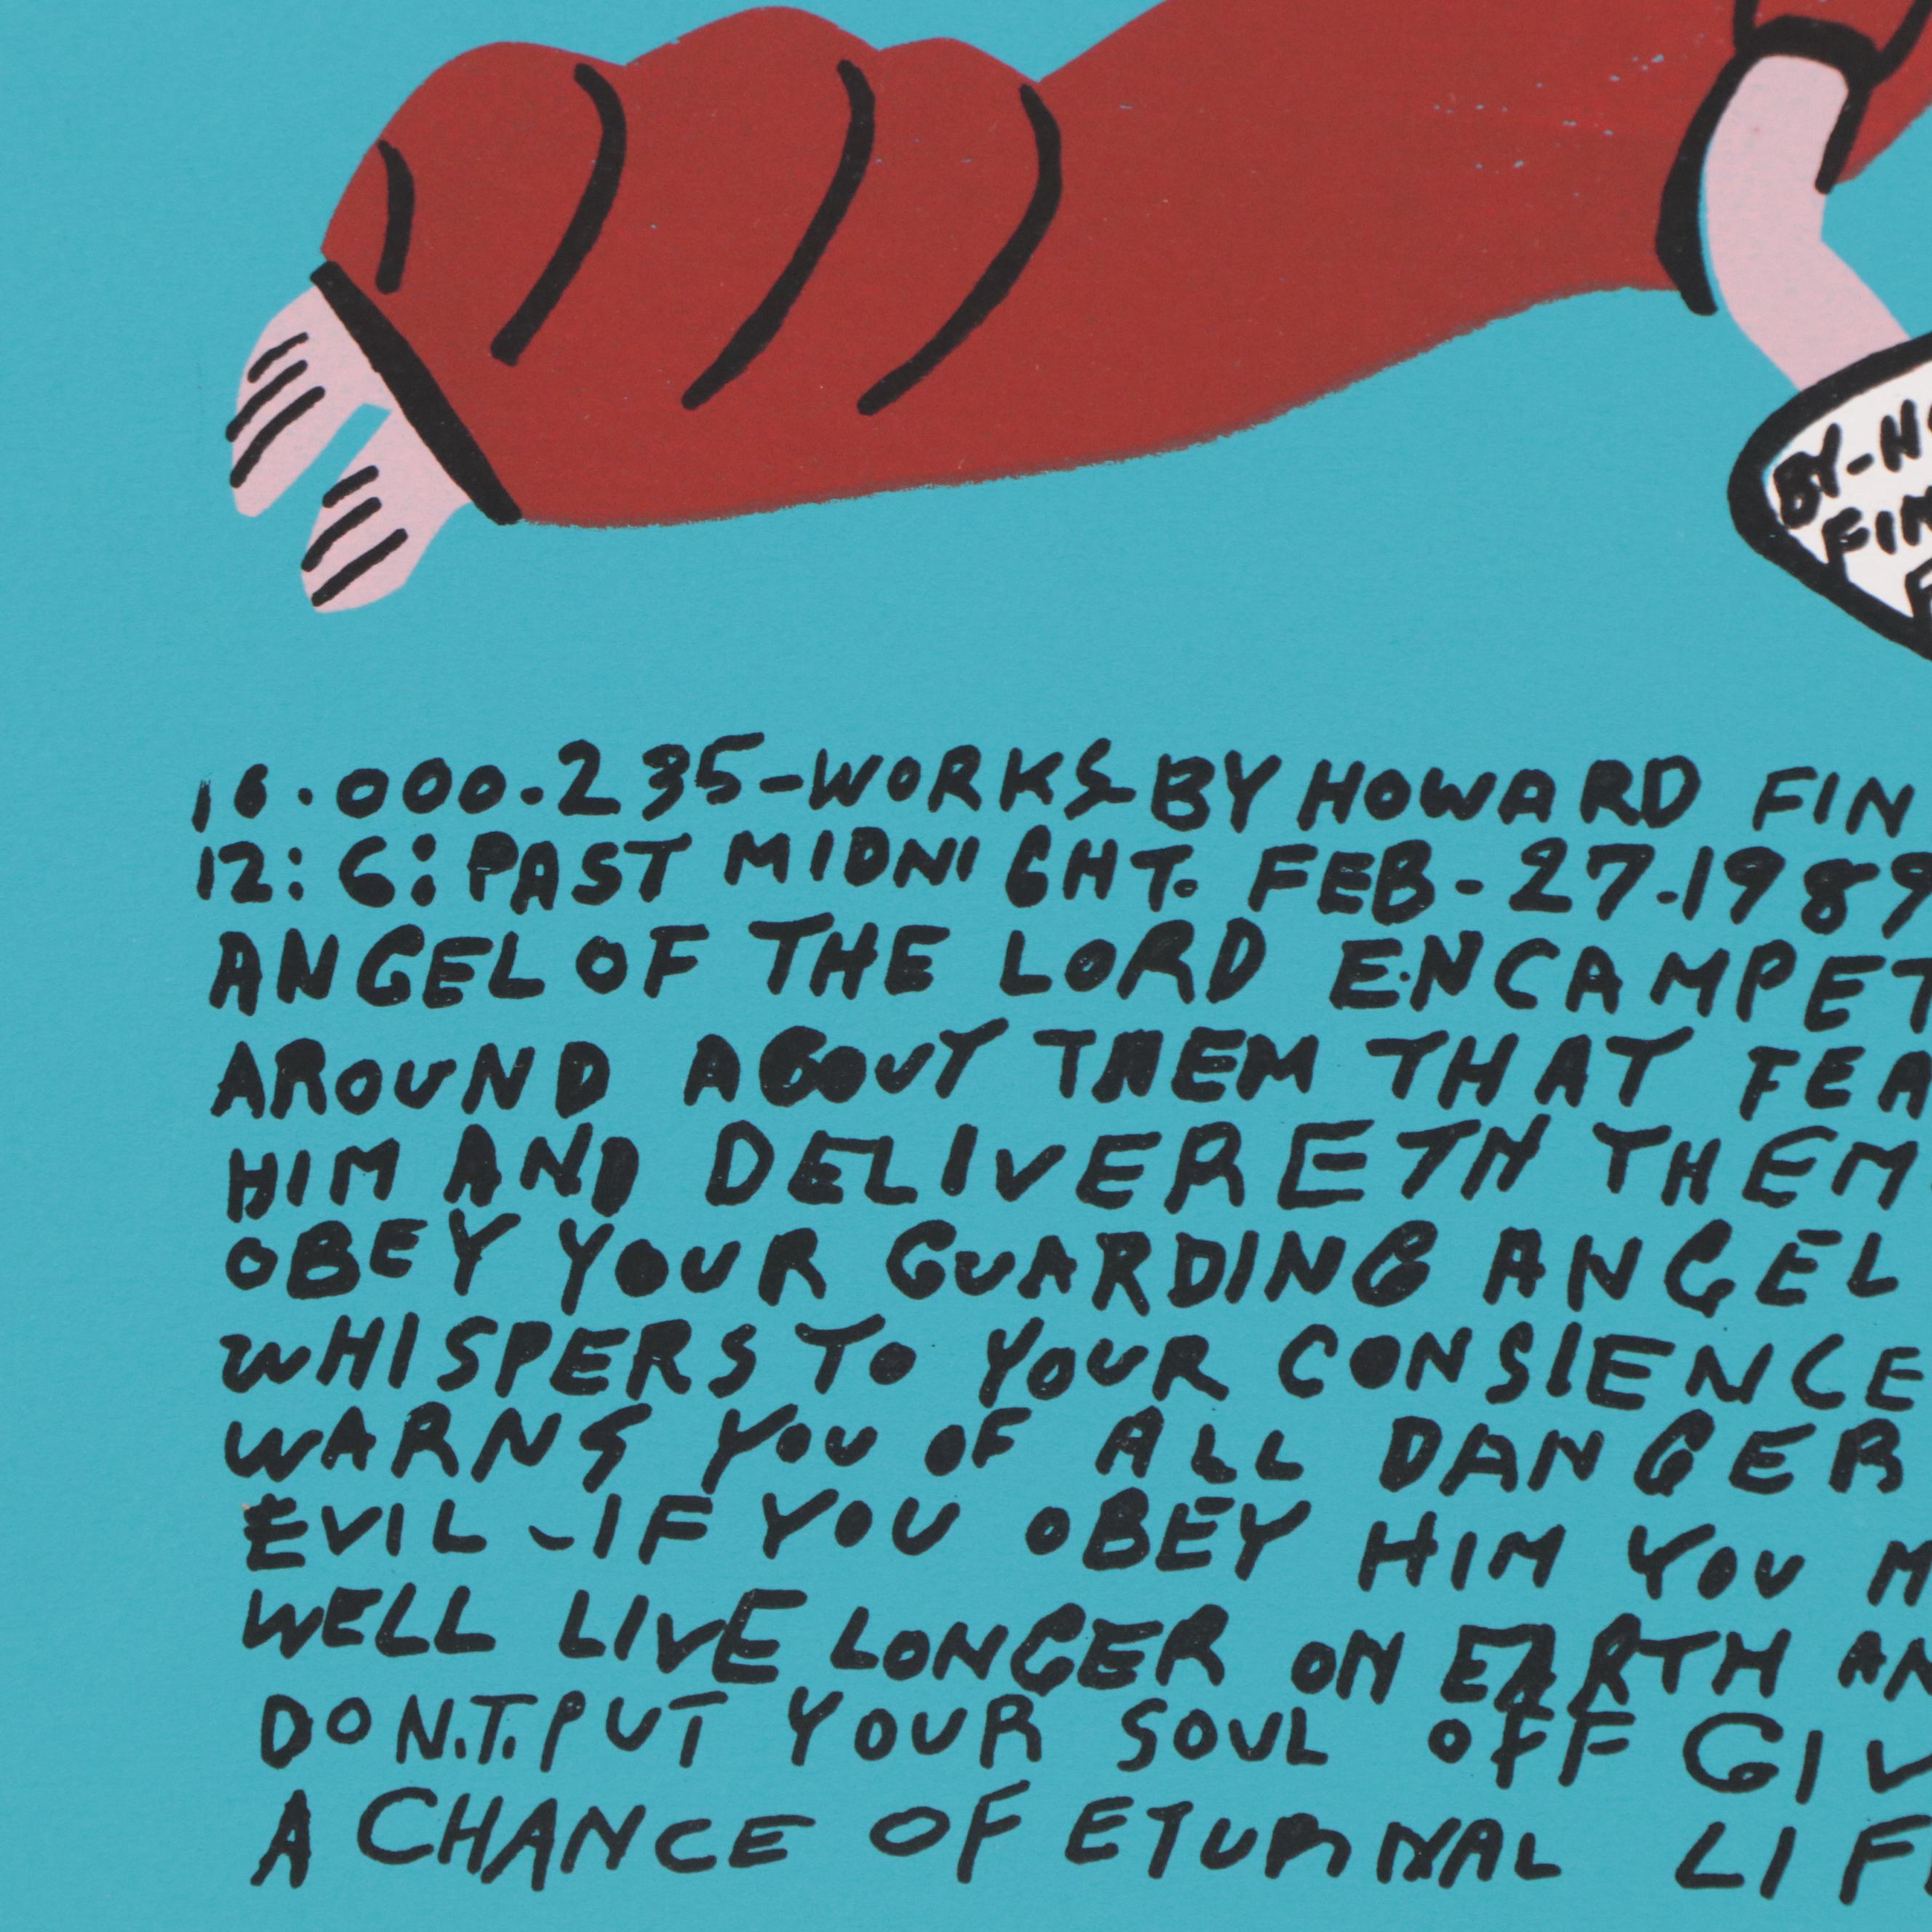 BY-HO
FIN
16.000.235-WORKS-BY HOWARD FIN
12:6: PAST MIDNIGHT. FEB-27.1989
ANGEL OF THE LORD ENCAMPET
AROUND ABOUT THEM THAT FEA
HIM AND DELIVERETH THEM.
OBEY YOUR GUARDING ANGEL
WHISPERS TO YOUR CONSIENCE
WARNS YOU OF ALL DANGER
EVIL -IF YOU OBEY HIM YOU M
WELL LIVE LONGER ON EARTH AN
DON.T.PUT YOUR SOUL OFF GIV
A CHANCE OF ETURNAL LIF